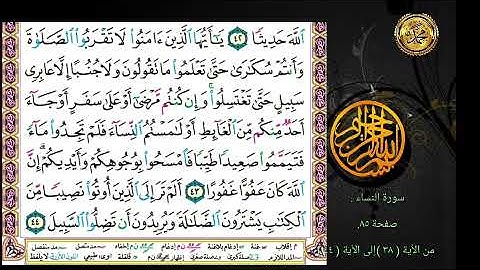 ٱللَّهَ حَدِيثًا ٤٢ يَـٰٓأَيُّهَا ٱلَّذِينَ ءَامَنُوا۟ لَا تَقْرَبُوا۟ ٱلصَّلَوٰةَ
وَأَنتُمْ سُكَـٰرَىٰ حَتَّىٰ تَعْلَمُوا۟ مَا تَقُولُونَ وَلَا جُنُبًا إِلَّا عَابِرِى
سَبِيلٍ حَتَّىٰ تَغْتَسِلُوا۟ ۚ وَإِن كُنتُم مَّرْضَىٰٓ أَوْ عَلَىٰ سَفَرٍ أَوْ جَآءَ
أَحَدٌ مِّنكُم مِّنَ ٱلْغَآئِطِ أَوْ لَـٰمَسْتُمُ ٱلنِّسَآءَ فَلَمْ تَجِدُوا۟ مَآءً
فَتَيَمَّمُوا۟ صَعِيدًا طَيِّبًا فَٱمْسَحُوا۟ بِوُجُوهِكُمْ وَأَيْدِيكُمْ ۗ إِنَّ
ٱللَّهَ كَانَ عَفُوًّا غَفُورًا ٤٣ أَلَمْ تَرَ إِلَى ٱلَّذِينَ أُوتُوا۟ نَصِيبًا مِّنَ
ٱلْكِتَـٰبِ يَشْتَرُونَ ٱلضَّلَـٰلَةَ وَيُرِيدُونَ أَن تَضِلُّوا۟ ٱلسَّبِيلَ ٤٤
سورة النساء :
صفحة ٨٥,
من الآية ( ٣٨ ) إلى الآية ( ٤